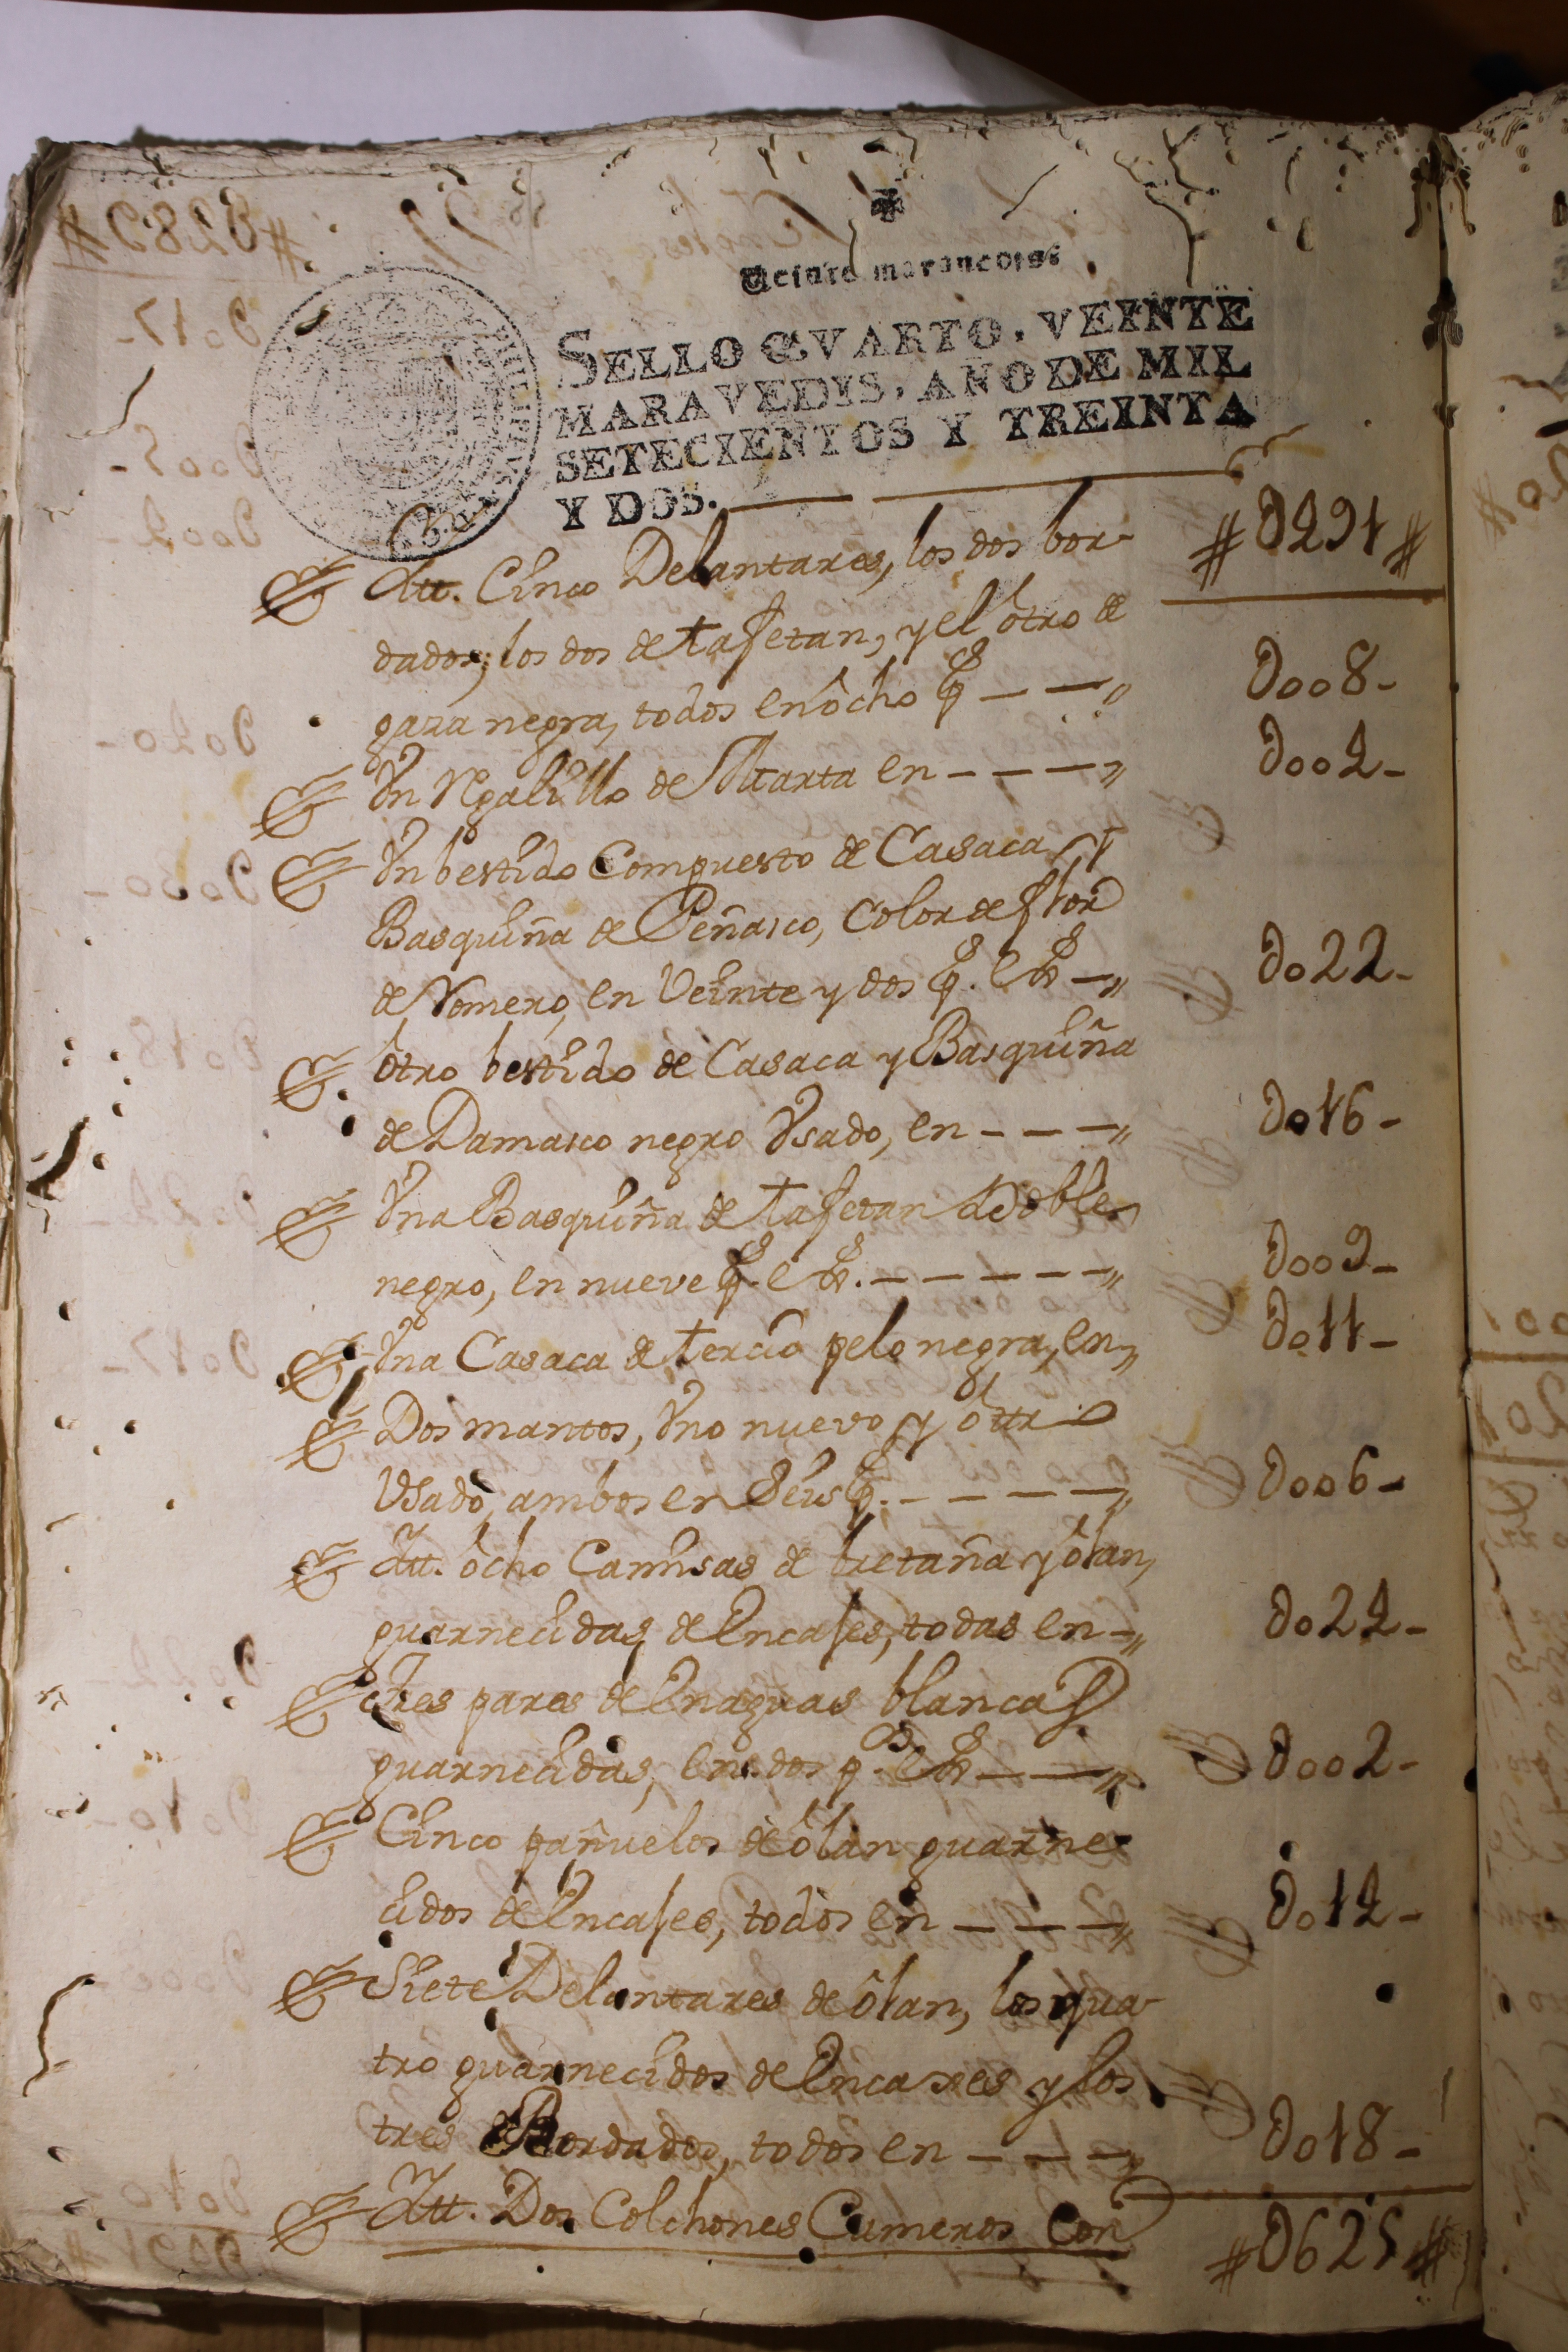 Veinte marauedis.
SELLO QVARTO, VEINTE
MARAVEDIS, AÑO DE MIL
SETECIENTOS Y TREINTA
Y DOS.
#0491#
Itt. Cinco Delantares, los dos bor-
dados, los dos de tafetan, y el otro de
gaza negra, todos en ôcho ps — — 0008-
Vn Rgalillo de Marta en - - - - 0004-
Vn bestido Compuesto de Casaca, y
Basquiña de Peñasco, Color de flor
de Romero, en Veinte y dos ps. es — 0022-
Otro bestido de Casaca y Basquiña
de Damasco negro Vsado, en - - - 0016-
Vna Basquiña de tafetan doble
negro, en nueve ps. es. - - - - - - 0009-
Vna Casaca de tercio pelo negra, en, 0011-
Dos mantos, Vno nuevo y ôttro
Vsado, ambos en Seis ps. - - - - - 0006-
Itt. ôcho Camisas de bretaña y ôlan,
guarnecidas de Encajes, todas en - 0024-
Tres pares de Enaguas blancas
guarnecidas, en dos ps. es — — 0002-
Cinco pañuelos de ôlan guarne-
cidos de Encajes, todos en - - - 0014-
Siete Delantares de ôlan, los qua-
tro guarnecidos de Encaxes y los
tres Bordados, todos en - - - - 0018-
Itt. Dos Colchones Cameros Con
#0625#